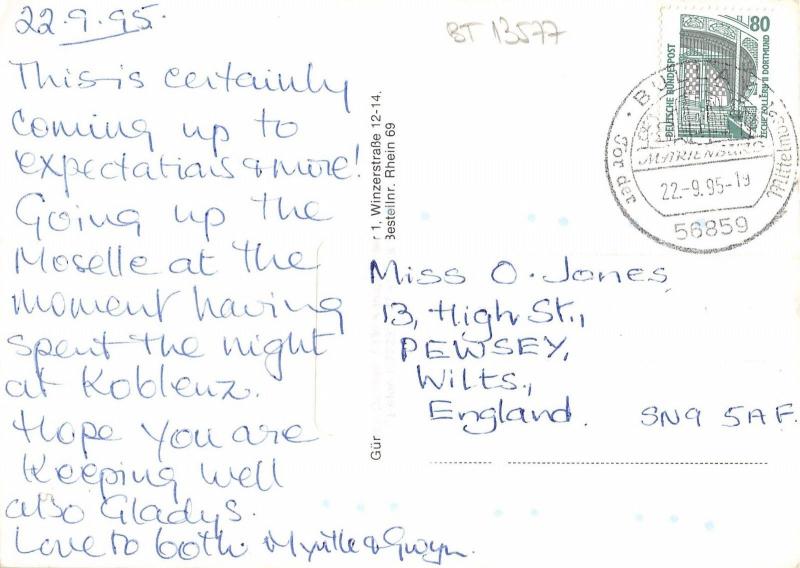 22.9.95.
This is certainly
coming up to
expectations & more!
Going up the
Moselle at the
moment having
spent the night
at Koblenz.
Hope you are
keeping well
also Gladys.
Love to both. Myrtle & Gwyn.
BT 13577
r 1, Winzerstraße 12-14.
Bestellnr. Rhein 69
Gür
80
DEUTSCHE BUNDESPOST
ZECHE ZOLLERN II DORTMUND
MARIENBURG
22.-9.95-19
56859
Miss O. Jones,
13, High St.,
PEWSEY,
Wilts.,
England. SN9 5AF.